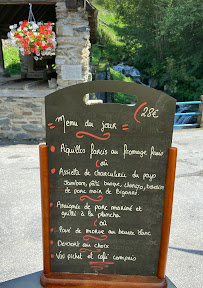 28€
Menu du jour
Aiguilles farcis au fromage frais
où
Assiette de charcuterie du pays
Jambon, pâté basque, chorizo, boudin
de porc noir de Bigorre
où
Araignée de porc mariné et
grillé à la plancha
où
Pavé de morue au beurre blanc
Dessert au choix
Vin pichet et café compris